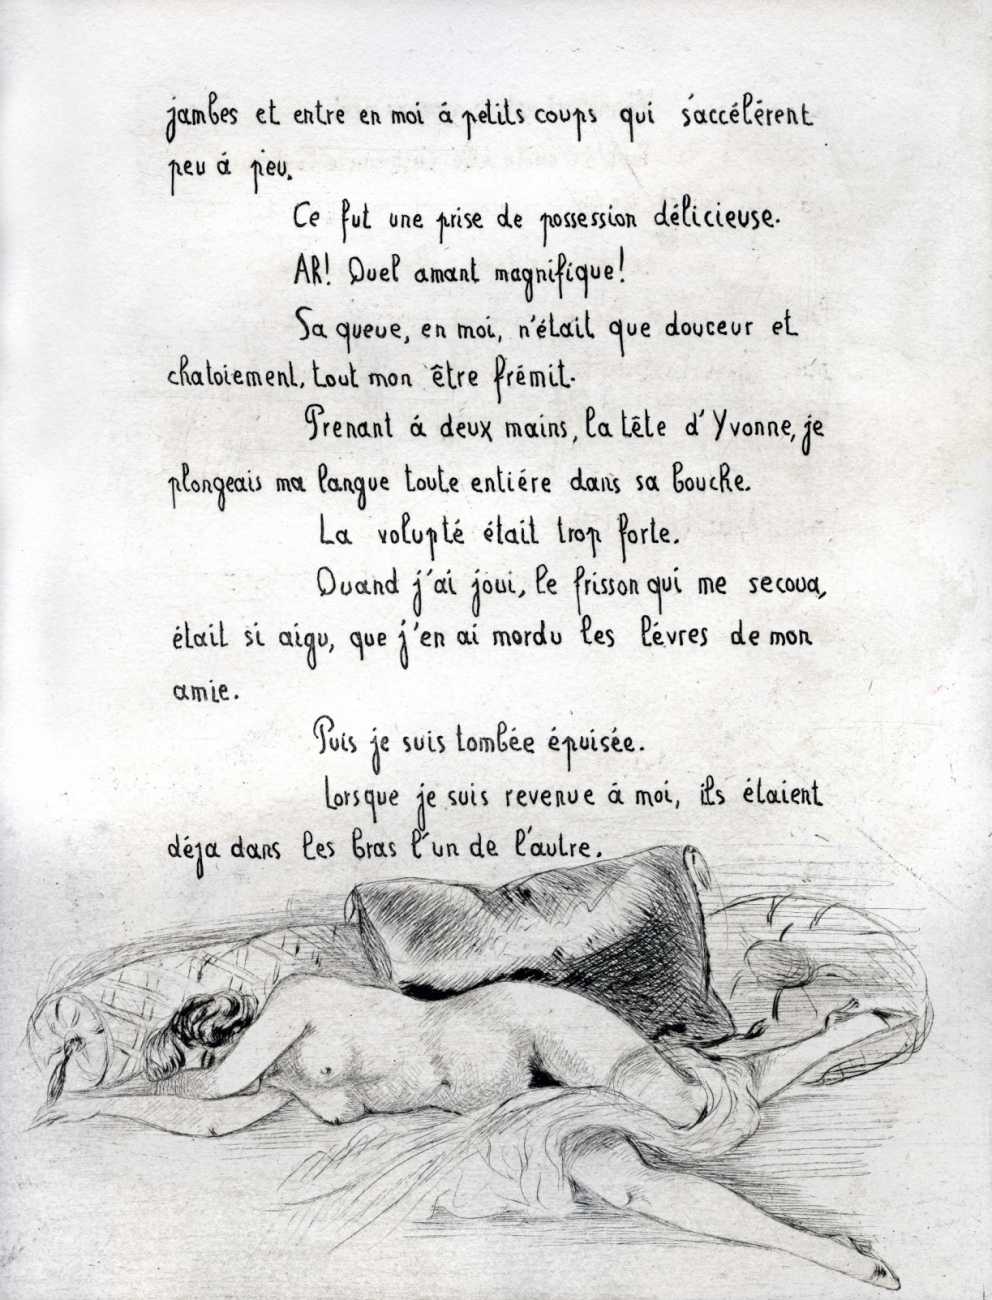 jambes et entre en moi á petits coups qui s'accélérent
peu á peu.
Ce fut une prise de possession délicieuse.
AR! Quel amant magnifique!
Sa queue, en moi, n'était que douceur et
chatoiement, tout mon être frémit.
Prenant á deux mains, la tête d'Yvonne, je
plongeais ma langue toute entiére dans sa bouche.
La volupté était trop forte.
Quand j'ai joui, le frisson qui me secoua,
était si aigu, que j'en ai mordu les lévres de mon
amie.
Puis je suis tombée épuisée.
Lorsque je suis revenue á moi, ils étaient
déja dans les bras l'un de l'autre.